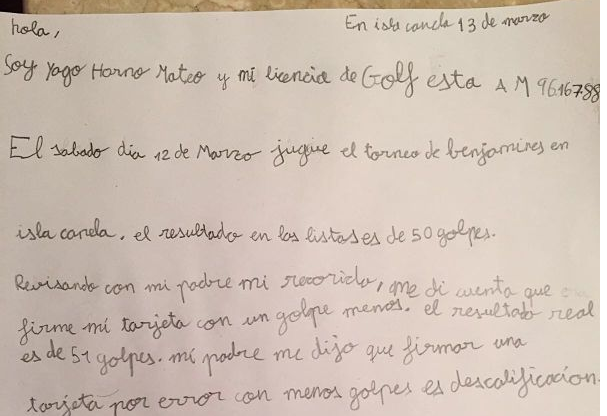 hola,
En isla canela 13 de marzo
Soy Yago Horno Mateo y mi licencia de Golf esta AM 96.16788
El sabado dia 12 de Marzo jugue el torneo de benjamines en
isla canela. el resultado en las listas es de 50 golpes.
Revisando con mi padre mi recorrido, me di cuenta que
firme mi tarjeta con un golpe menos. el resultado real
es de 51 golpes. mi padre me dijo que firmar una
tarjeta por error con menos golpes es descalificacion.